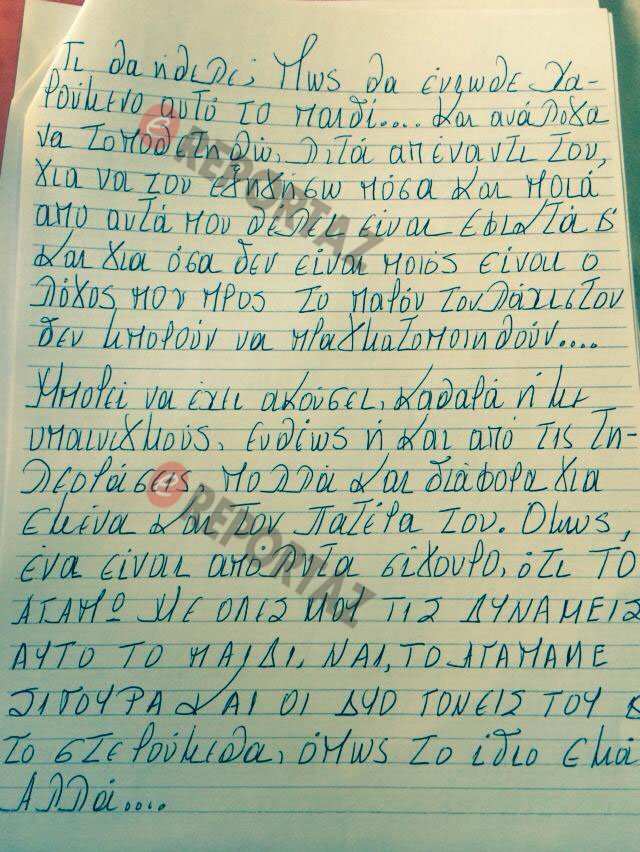 Τι θα ήθελε; Πως θα ένιωθε χα-
ρούμενο αυτό το παιδί.... Και ανάλογα
να τοποθετηθώ, λιτά απέναντι του,
για να του εξηγήσω πόσα και ποιά
απο αυτά που θέλει είναι εφικτά &
και για όσα δεν είναι ποιός είναι ο
λόγος που προς το παρόν τουλάχιστον
δεν μπορούν να πραγματοποιηθούν....
Μπορεί να έχει ακούσει, καθαρά ή με
υπαινιγμούς, ευθέως ή και από τις τη-
λεοράσεις, πολλά και διάφορα για
εμένα και τον πατέρα του. Όμως,
ένα είναι απόλυτα σίγουρο, ότι ΤΟ
ΑΓΑΠΩ ΜΕ ΟΛΕΣ ΜΟΥ ΤΙΣ ΔΥΝΑΜΕΙΣ
ΑΥΤΟ ΤΟ ΠΑΙΔΙ. ΝΑΙ, ΤΟ ΑΓΑΠΑΜΕ
ΣΙΓΟΥΡΑ ΚΑΙ ΟΙ ΔΥΟ ΓΟΝΕΙΣ ΤΟΥ &
το στερούμεθα, όμως το ίδιο εμά
Αλλά....
REPORTAZ
REPORTAZ